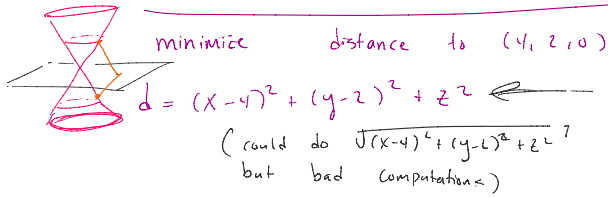 minimize distance to (4, 2, 0)
d = (x-4)² + (y-2)² + z²
(could do √(x-4)² + (y-2)² + z² ?
but bad computations)